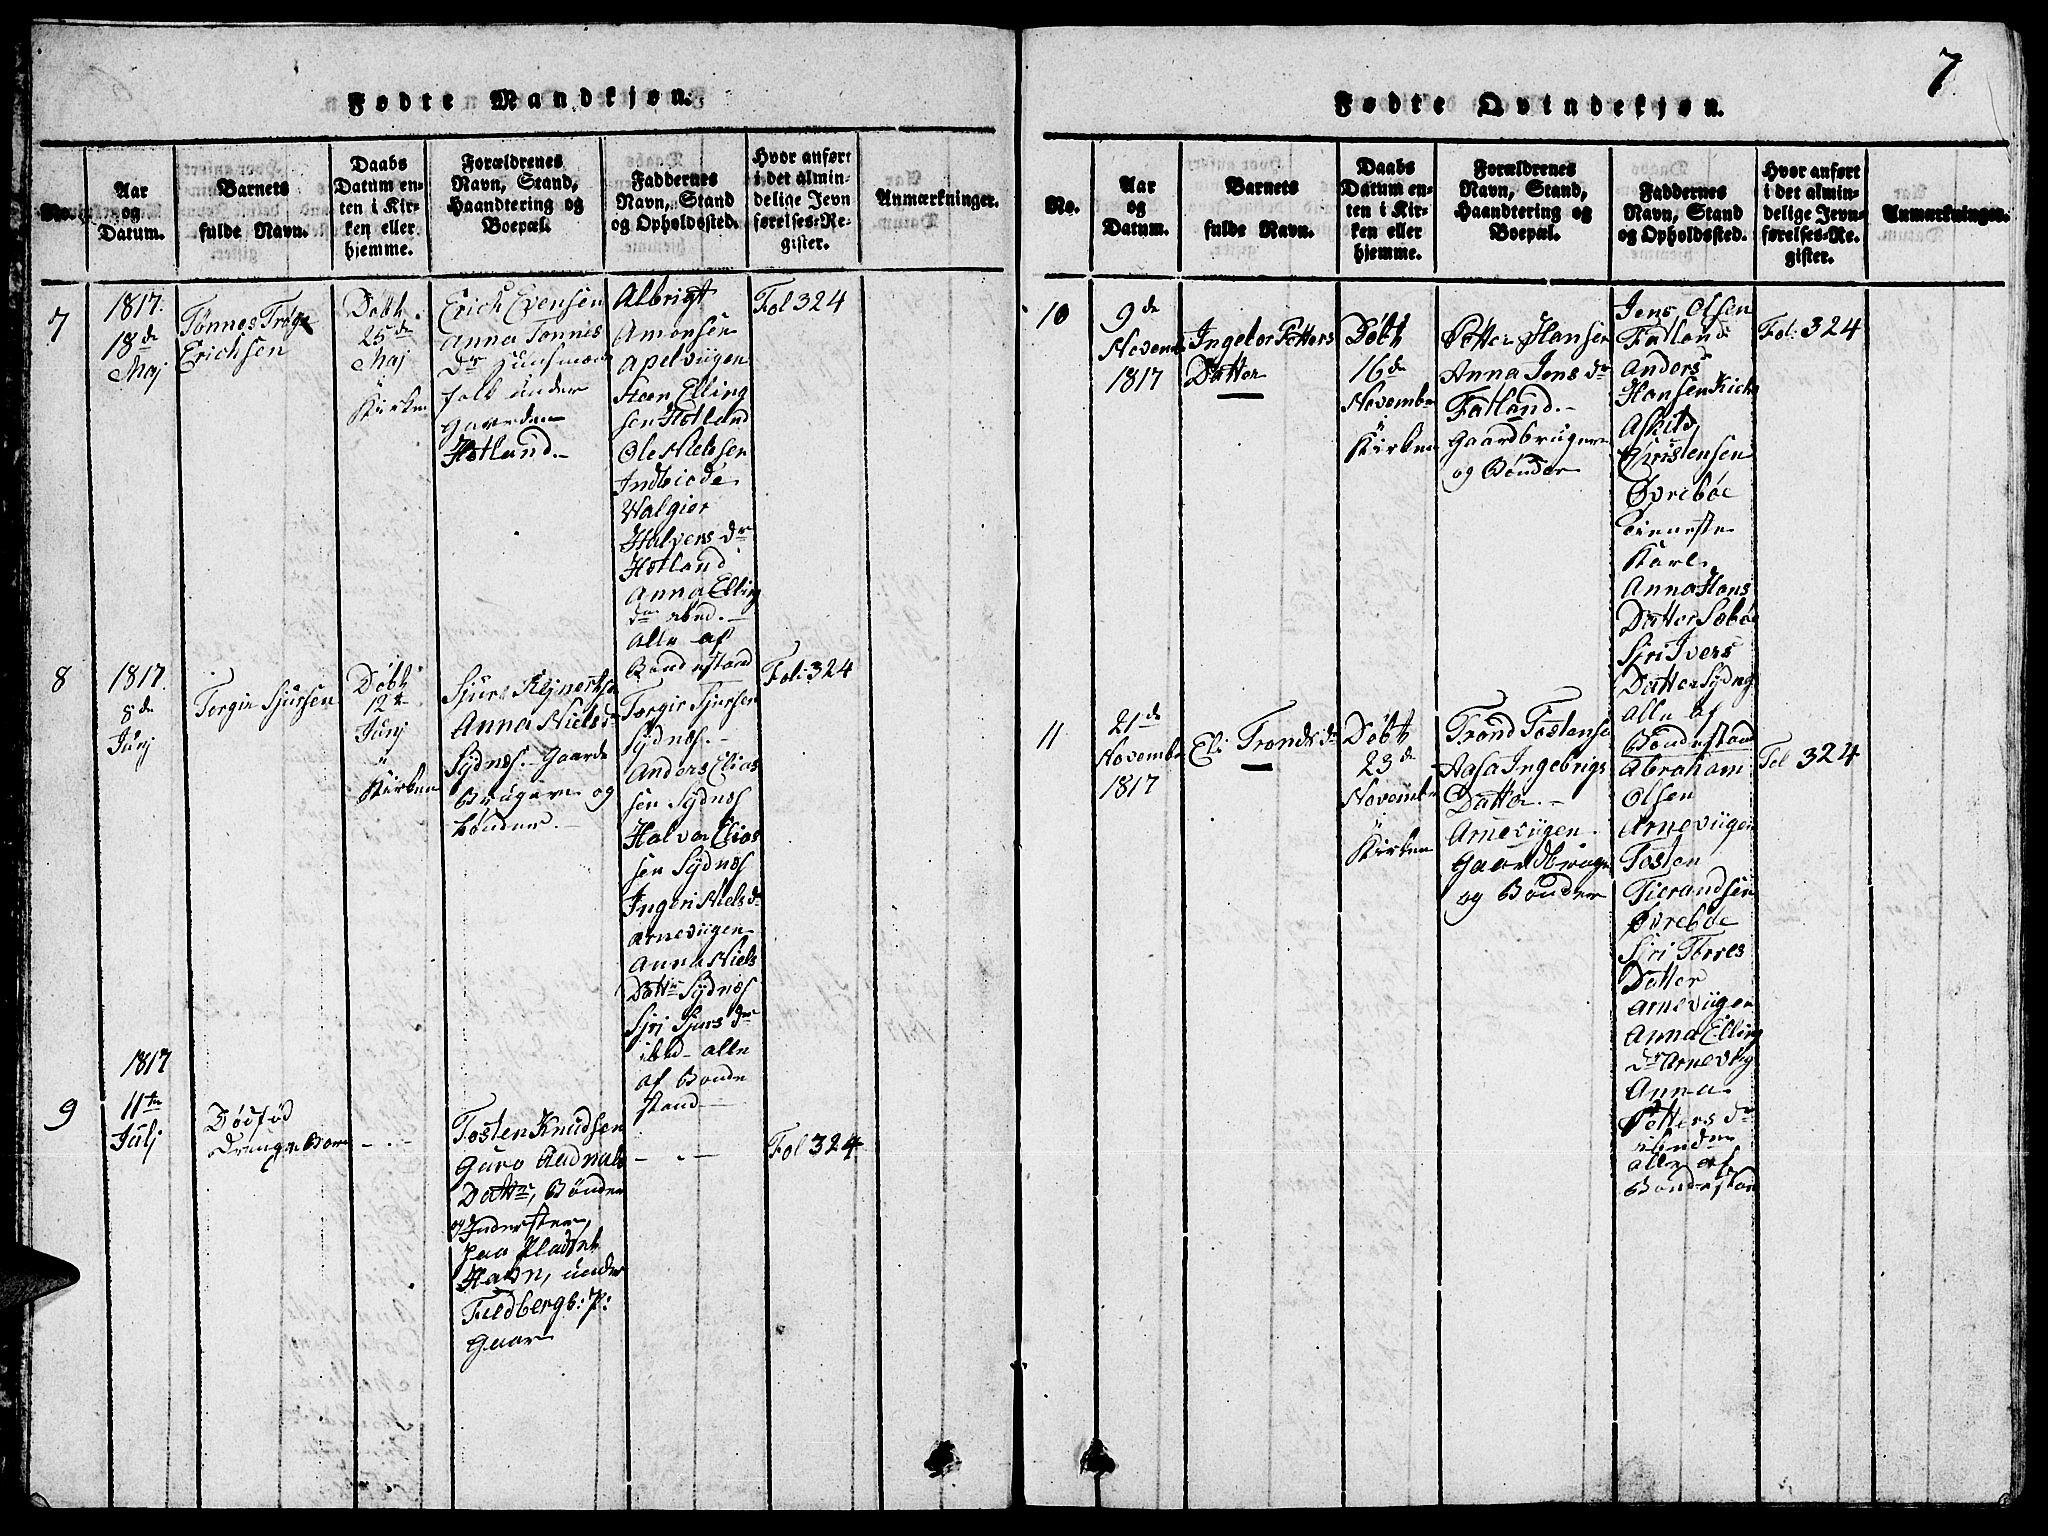 Fødte Mandkjøn.
No.
Aar
og
Datum.
Barnets
fulde Navn.
Daabs
Datum en-
ten i Kir-
ken eller
hjemme.
Forældrenes
Navn, Stand,
Haandtering og
Boepæl.
Faddernes
Navn, Stand
og Opholdssted.
Hvor anført
i det almin-
delige Jevn
førelses-Re-
gister.
Anmærkninger.
7
1817.
18de
Maj
Tønnes
Erichsen
Døbt
25de
Maj
Kirken
Erich Evensen
Anna Tønnes
dr Huusmands
folk under
Gaarden
Hotland.
Albrigt
Amonsen
Apelviigen
Steen Elling
sen Hotland
Ole Nielsen
Valgier
Halvors dr
Hotland
Anna Elling
dr ibid.
Alle af
Bondestand
Fol 324
8
1817.
8de
Junj
Torgir Sjursen
Døbt
12te
Junj
Kirken
Sjur Rejnertse
Anna Niels dr
Sydnæs. Gaard
Brugere og
Bønder.
Torgir Sjursen
Sydnæs.
Anders Elias
sen Sydnæs
Halvor Elias
sen Sydnæs
Ingeri Niels dr
Arneviigen
Anna Niels
Dattr Sydnæs
Siri Sjurs dr
ibid alle
af Bonde
stand
Fol: 324
9
1817
11te
Julj
Dødfød
Drenge Barn
Tosten Knudsen
Guro Aadnals
Dattr, Bønder
og Inderster,
paa Pladset
Havn, under
Fieldbergs: P:
Gaar
Fol 324
7.
Fødte Qvindekjøn.
No.
Aar
og
Datum.
Barnets
fulde Navn.
Daabs
Datum en-
ten i Kir-
ken eller
hjemme.
Forældrenes
Navn, Stand,
Haandtering og
Boepæl.
Faddernes
Navn, Stand
og Opholdssted.
Hvor anført
i det almin-
delige Jevn-
førelses-Re-
gister.
Anmærkninger.
10
9de
Novemb
1817
Ingebor Petters
Datter
Døbt
16de
Novembr
Kirken
Petter Hansen
Anna Jens dr
Fatland.
Gaardbrugere
og Bønder
Jens Olsen
Fatland
Anders
Hansen
Christensen
Øvrebøe
Tieneste
Karl
Anna Hans
Datter Sæbøe
Siri Ivers
Datter Sydnæ
alle af
Bondestand
Fol: 324
11
21de
Novembe
1817
Eli Tronds dr
Døbt
23de
Novembr
Kirken
Trond Tostense
Aasa Ingebrigs
Datter.
Arneviigen
Gaardbruge
og Bønder
Abraham
Olsen
Arneviigen
Tosten
Tierandsen
Øvrebøe
Siri Torres
Datter
Arneviigen
Anna Elling
dr Arneviig
Anna
Petters dr
alle af
Bondestan
Fol 324